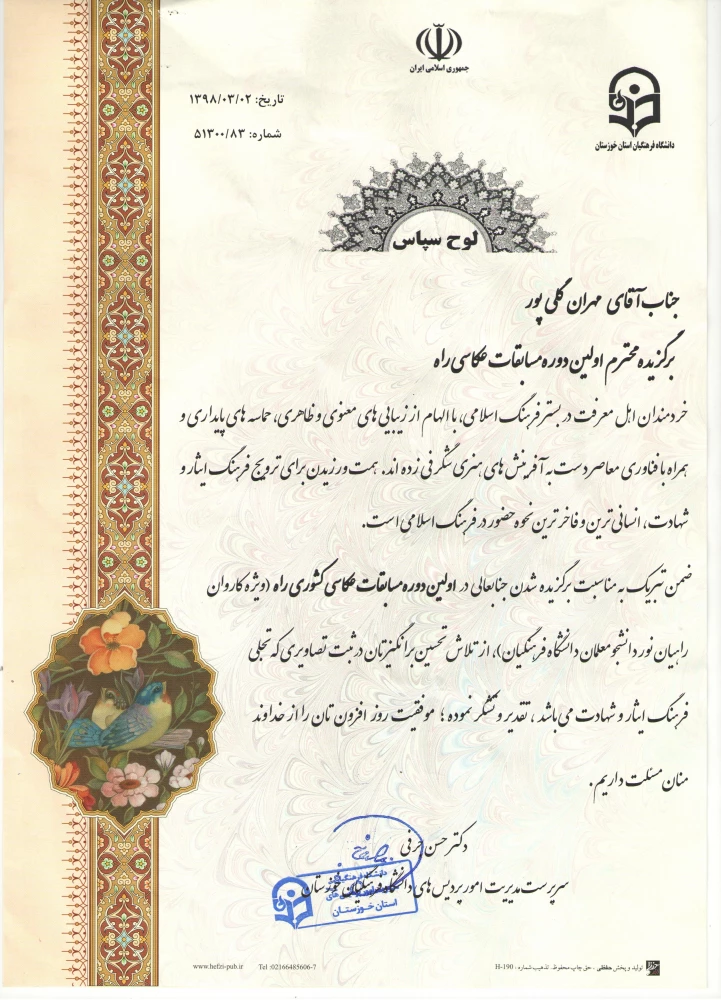 جمهوری اسلامی ایران
دانشگاه فرهنگیان استان خوزستان
تاریخ: ۱۳۹۸/۰۳/۰۲
شماره: ۵۱۳۰۰/۸۳
لوح سپاس
جناب آقای مهران گلی پور
برگزیده محترم اولین دوره مسابقات عکاسی راه
خردمندان اهل معرفت در بستر فرهنگ اسلامی، با الهام از زیبایی های معنوی و ظاهری، حماسه های پایداری و
همراه با فناوری معاصر دست به آفرینش های هنری شگرفی زده اند. همت ورزیدن برای ترویج فرهنگ ایثار و
شهادت، انسانی ترین و فاخر ترین نحوه حضور در فرهنگ اسلامی است.
ضمن تبریک به مناسبت برگزیده شدن جنابعالی در اولین دوره مسابقات عکاسی کشوری راه (ویژه کاروان
راهیان نور دانشجو معلمان دانشگاه فرهنگیان)، از تلاش تحسین برانگیزتان در ثبت تصاویری که تجلی
فرهنگ ایثار و شهادت می باشد، تقدیر و تشکر نموده؛ موفقیت روز افزون تان را از خداوند
منان مسئلت داریم.
دکتر حسن حرفی
سرپرست مدیریت امور پردیس های دانشگاه فرهنگیان خوزستان
دانشگاه فرهنگیان
استان خوزستان
تولید و پخش حفظی - حق چاپ محفوظ. تذهیب شماره: H-190
Tel :02166485606-7
www.hefzi-pub.ir